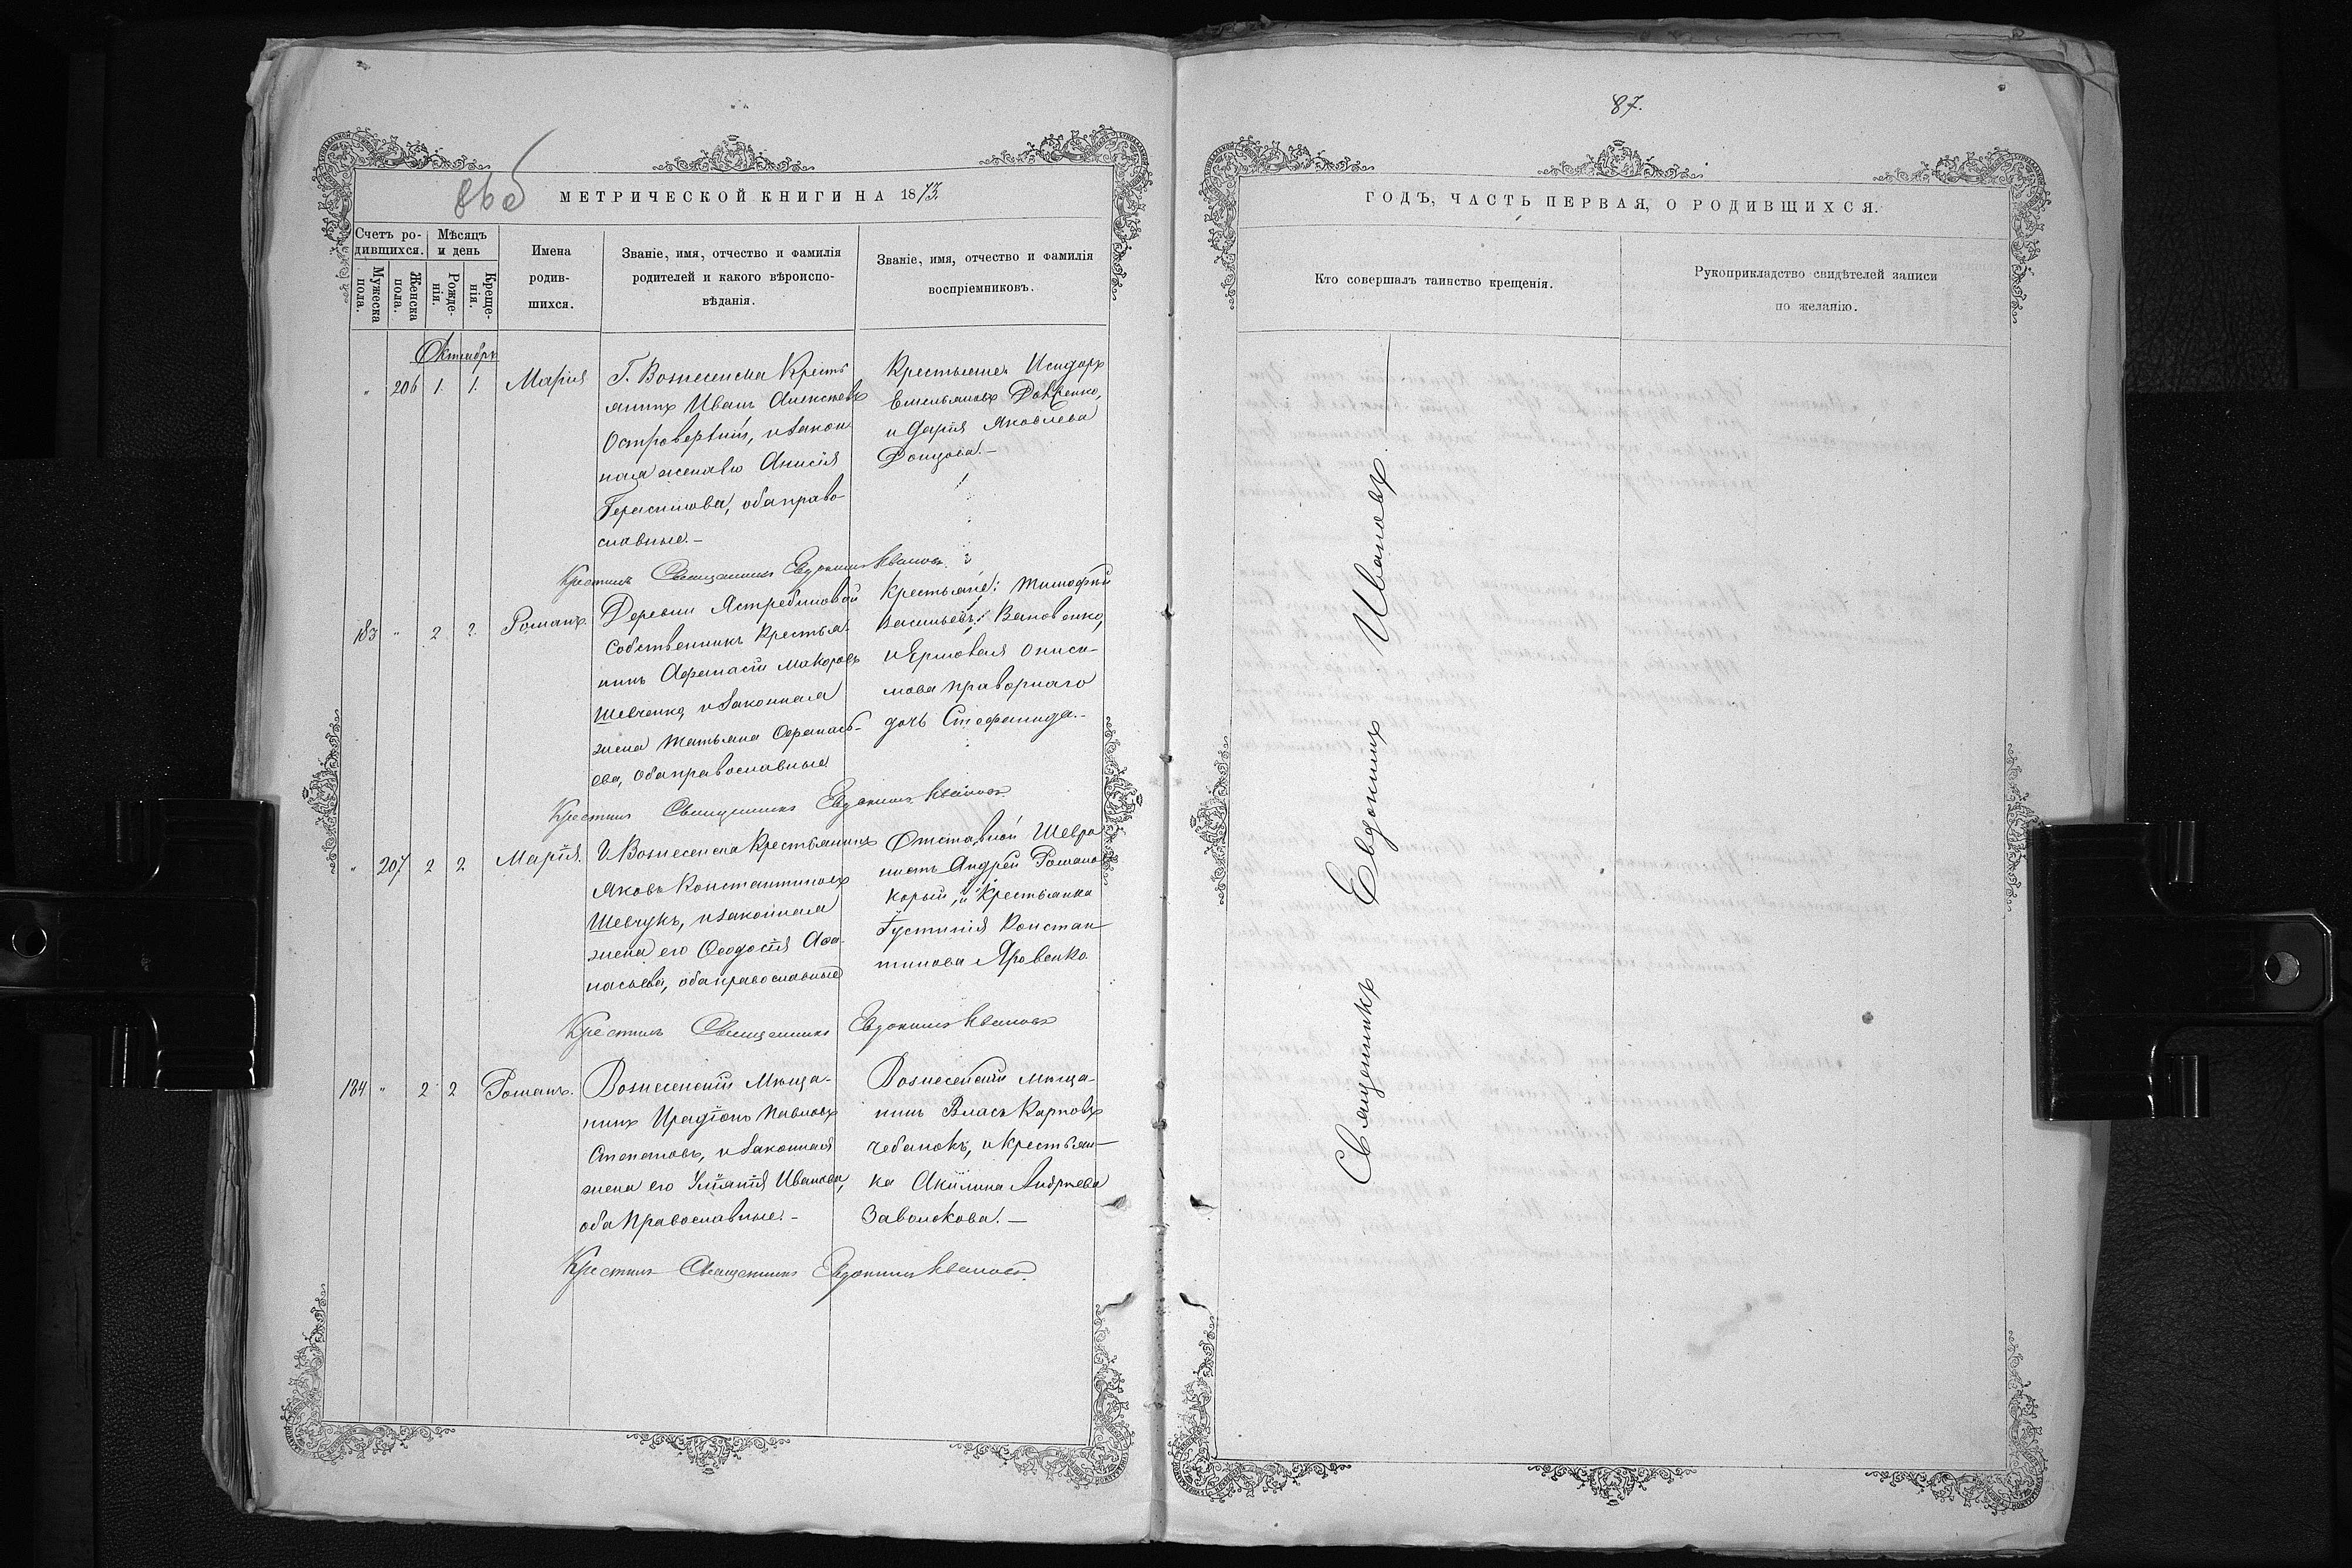 86об
МЕТРИЧЕСКОЙ КНИГИ НА 1873.
Счетъ ро-
дившихся.
Мѣсяцъ
и день
Мужеска
пола.
Женска
пола.
Рожде-
нія.
Креще-
нія.
Имена
родив-
шихся.
Званіе, имя, отчество и фамилія
родителей и какого вѣроиспо-
вѣданія.
Званіе, имя, отчество и фамилія
воспріемниковъ.
Октябрь
" 206 1. 1. Марія
Г. Вознесенска Кресть
янинъ Иванъ Алексѣевъ
Островерхій, и закон
ная жена его Анисія
Герасимова, оба право
славные.-
Крестьяне: Исидоръ
Емельяновъ Довченко,
и Дарія Яковлева
Донцова.-
Крестилъ Священникъ Евдокимъ Ивановъ
183 " 2. 2. Романъ.
Деревни Ястребиновой
Собственникъ Крестья-
нинъ Афанасій Макаровъ
Шевченко, и законная
жена Татьяна Афанась-
ева, оба православные
Крестьяне: Тимофей
Васильевъ
и Ермовея Ониси-
мова
дочь Стефанида.-
Крестилъ Священникъ Евдокимъ Ивановъ
" 207 2 2 Марія.
Г. Вознесенска Крестьянинъ
Яковъ Константиновъ
Шевчукъ, и законная
жена его Ѳеодосія Аѳа-
насьева, оба православные
Отставной
Андрей Романовъ
Корый, и Крестьянка
Густинія Констан-
тинова Яровенко
Крестилъ Священникъ Евдокимъ Ивановъ
184 " 2 2 Романъ.
Вознесенскій Мѣща-
нинъ Иродіонъ Павловъ
Степановъ, и законная
жена его Иванова,
оба Православные.-
Вознесенскій Мѣща-
нинъ Власъ Карповъ
Чебанокъ, и крестьян-
ка Акилина Андреева
Заволокова.-
Крестилъ Священникъ Евдокимъ Ивановъ.
87.
ГОДЪ, ЧАСТЬ ПЕРВАЯ, О РОДИВШИХСЯ.
Кто совершалъ таинство крещенія.
Рукоприкладство свидѣтелей записи
по желанію.
Священникъ Евдокимъ Ивановъ